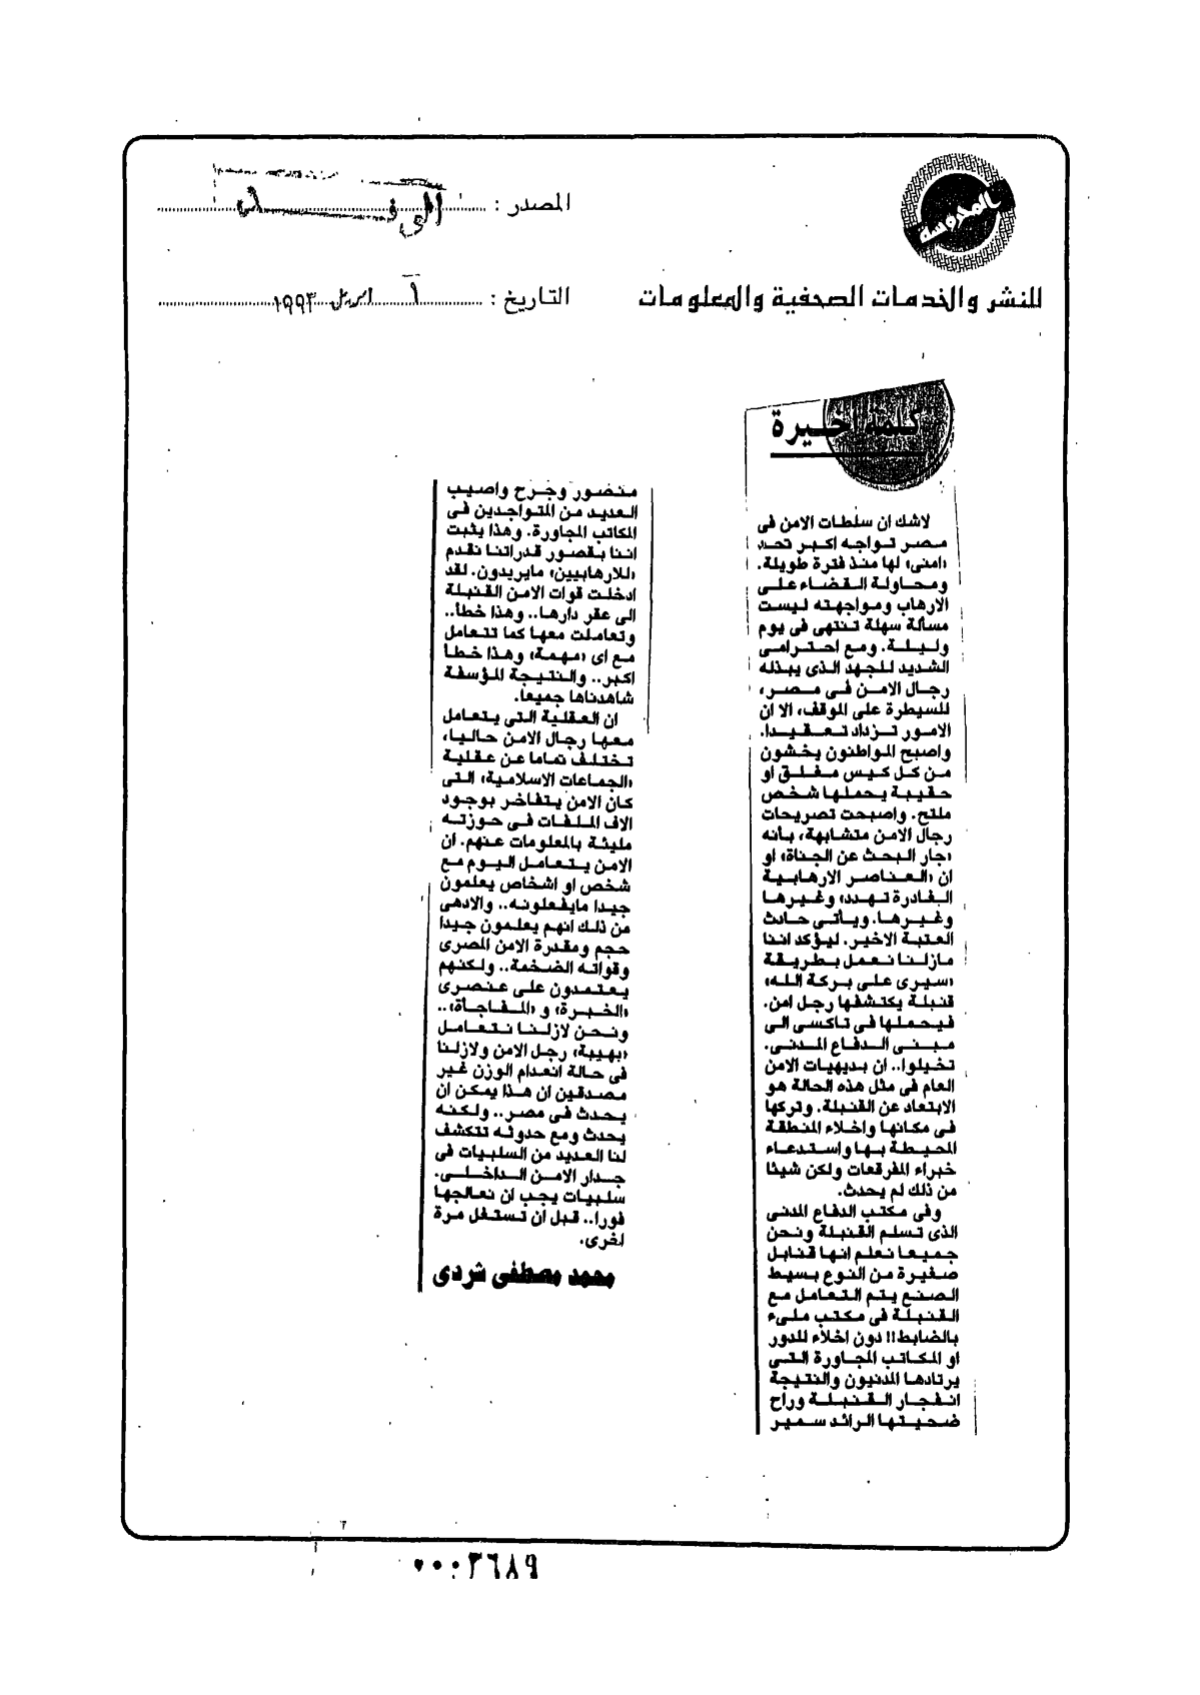 المحروسة
للنشر والخدمات الصحفية والمعلومات
المصدر : الوفد
التاريخ : ٦ ابريل ١٩٩٣
كلمة اخيرة
لاشك ان سلطات الامن فى
مصر تواجه اكبر تحد
«امنى» لها منذ فترة طويلة.
ومحاولة القضاء على
الارهاب ومواجهته ليست
مسألة سهلة تنتهى فى يوم
وليلة. ومع احترامى
الشديد للجهد الذى يبذله
رجال الامن فى مصر،
للسيطرة على الموقف، الا ان
الامور تزداد تعقيدا.
واصبح المواطنون يخشون
من كل كيس مغلق او
حقيبة يحملها شخص
ملتح. واصبحت تصريحات
رجال الامن متشابهة، بأنه
«جار البحث عن الجناة» او
ان «العناصر الارهابية
الغادرة تهدد» وغيرها
وغيرها. ويأتى حادث
العتبة الاخير. ليؤكد اننا
مازلنا نعمل بطريقة
«سيرى على بركة الله»
قنبلة يكتشفها رجل امن.
فيحملها فى تاكسى الى
مبنى الدفاع المدنى.
تخيلوا.. ان بديهيات الامن
العام فى مثل هذه الحالة هو
الابتعاد عن القنبلة. وتركها
فى مكانها واخلاء المنطقة
المحيطة بها واستدعاء
خبراء المفرقعات ولكن شيئا
من ذلك لم يحدث.
وفى مكتب الدفاع المدنى
الذى تسلم القنبلة ونحن
جميعا نعلم انها قنابل
صغيرة من النوع بسيط
الصنع يتم التعامل مع
القنبلة فى مكتب ملىء
بالضابط!! دون اخلاء للدور
او المكاتب المجاورة التى
يرتادها المدنيون والنتيجة
انفجار القنبلة وراح
ضحيتها الرائد سمير
منصور وجرح واصيب
العديد من المتواجدين فى
المكاتب المجاورة. وهذا يثبت
اننا بقصور قدراتنا نقدم
«للارهابيين» مايريدون. لقد
ادخلت قوات الامن القنبلة
الى عقر دارها.. وهذا خطأ..
وتعاملت معها كما تتعامل
مع اى «مهمة» وهذا خطا
اكبر.. والنتيجة المؤسفة
شاهدناها جميعا.
ان العقلية التى يتعامل
معها رجال الامن حاليا،
تختلف تماما عن عقلية
«الجماعات الاسلامية» التى
كان الامن يتفاخر بوجود
الاف الملفات فى حوزته
مليئة بالمعلومات عنهم. ان
الامن يتعامل اليوم مع
شخص او اشخاص يعلمون
جيدا مايفعلونه.. والادهى
من ذلك انهم يعلمون جيدا
حجم ومقدرة الامن المصرى
وقواته الضخمة.. ولكنهم
يعتمدون على عنصرى
«الخبرة» و «المفاجأة»..
ونحن لازلنا نتعامل
«بهيبة» رجل الامن ولازلنا
فى حالة انعدام الوزن غير
مصدقين ان هذا يمكن ان
يحدث فى مصر.. ولكنه
يحدث ومع حدوثه تتكشف
لنا العديد من السلبيات فى
جدار الامن الداخلى.
سلبيات يجب ان نعالجها
فورا.. قبل ان تستغل مرة
اخرى.
محمد مصطفى شردى
٠٠٠٣٦٨٩